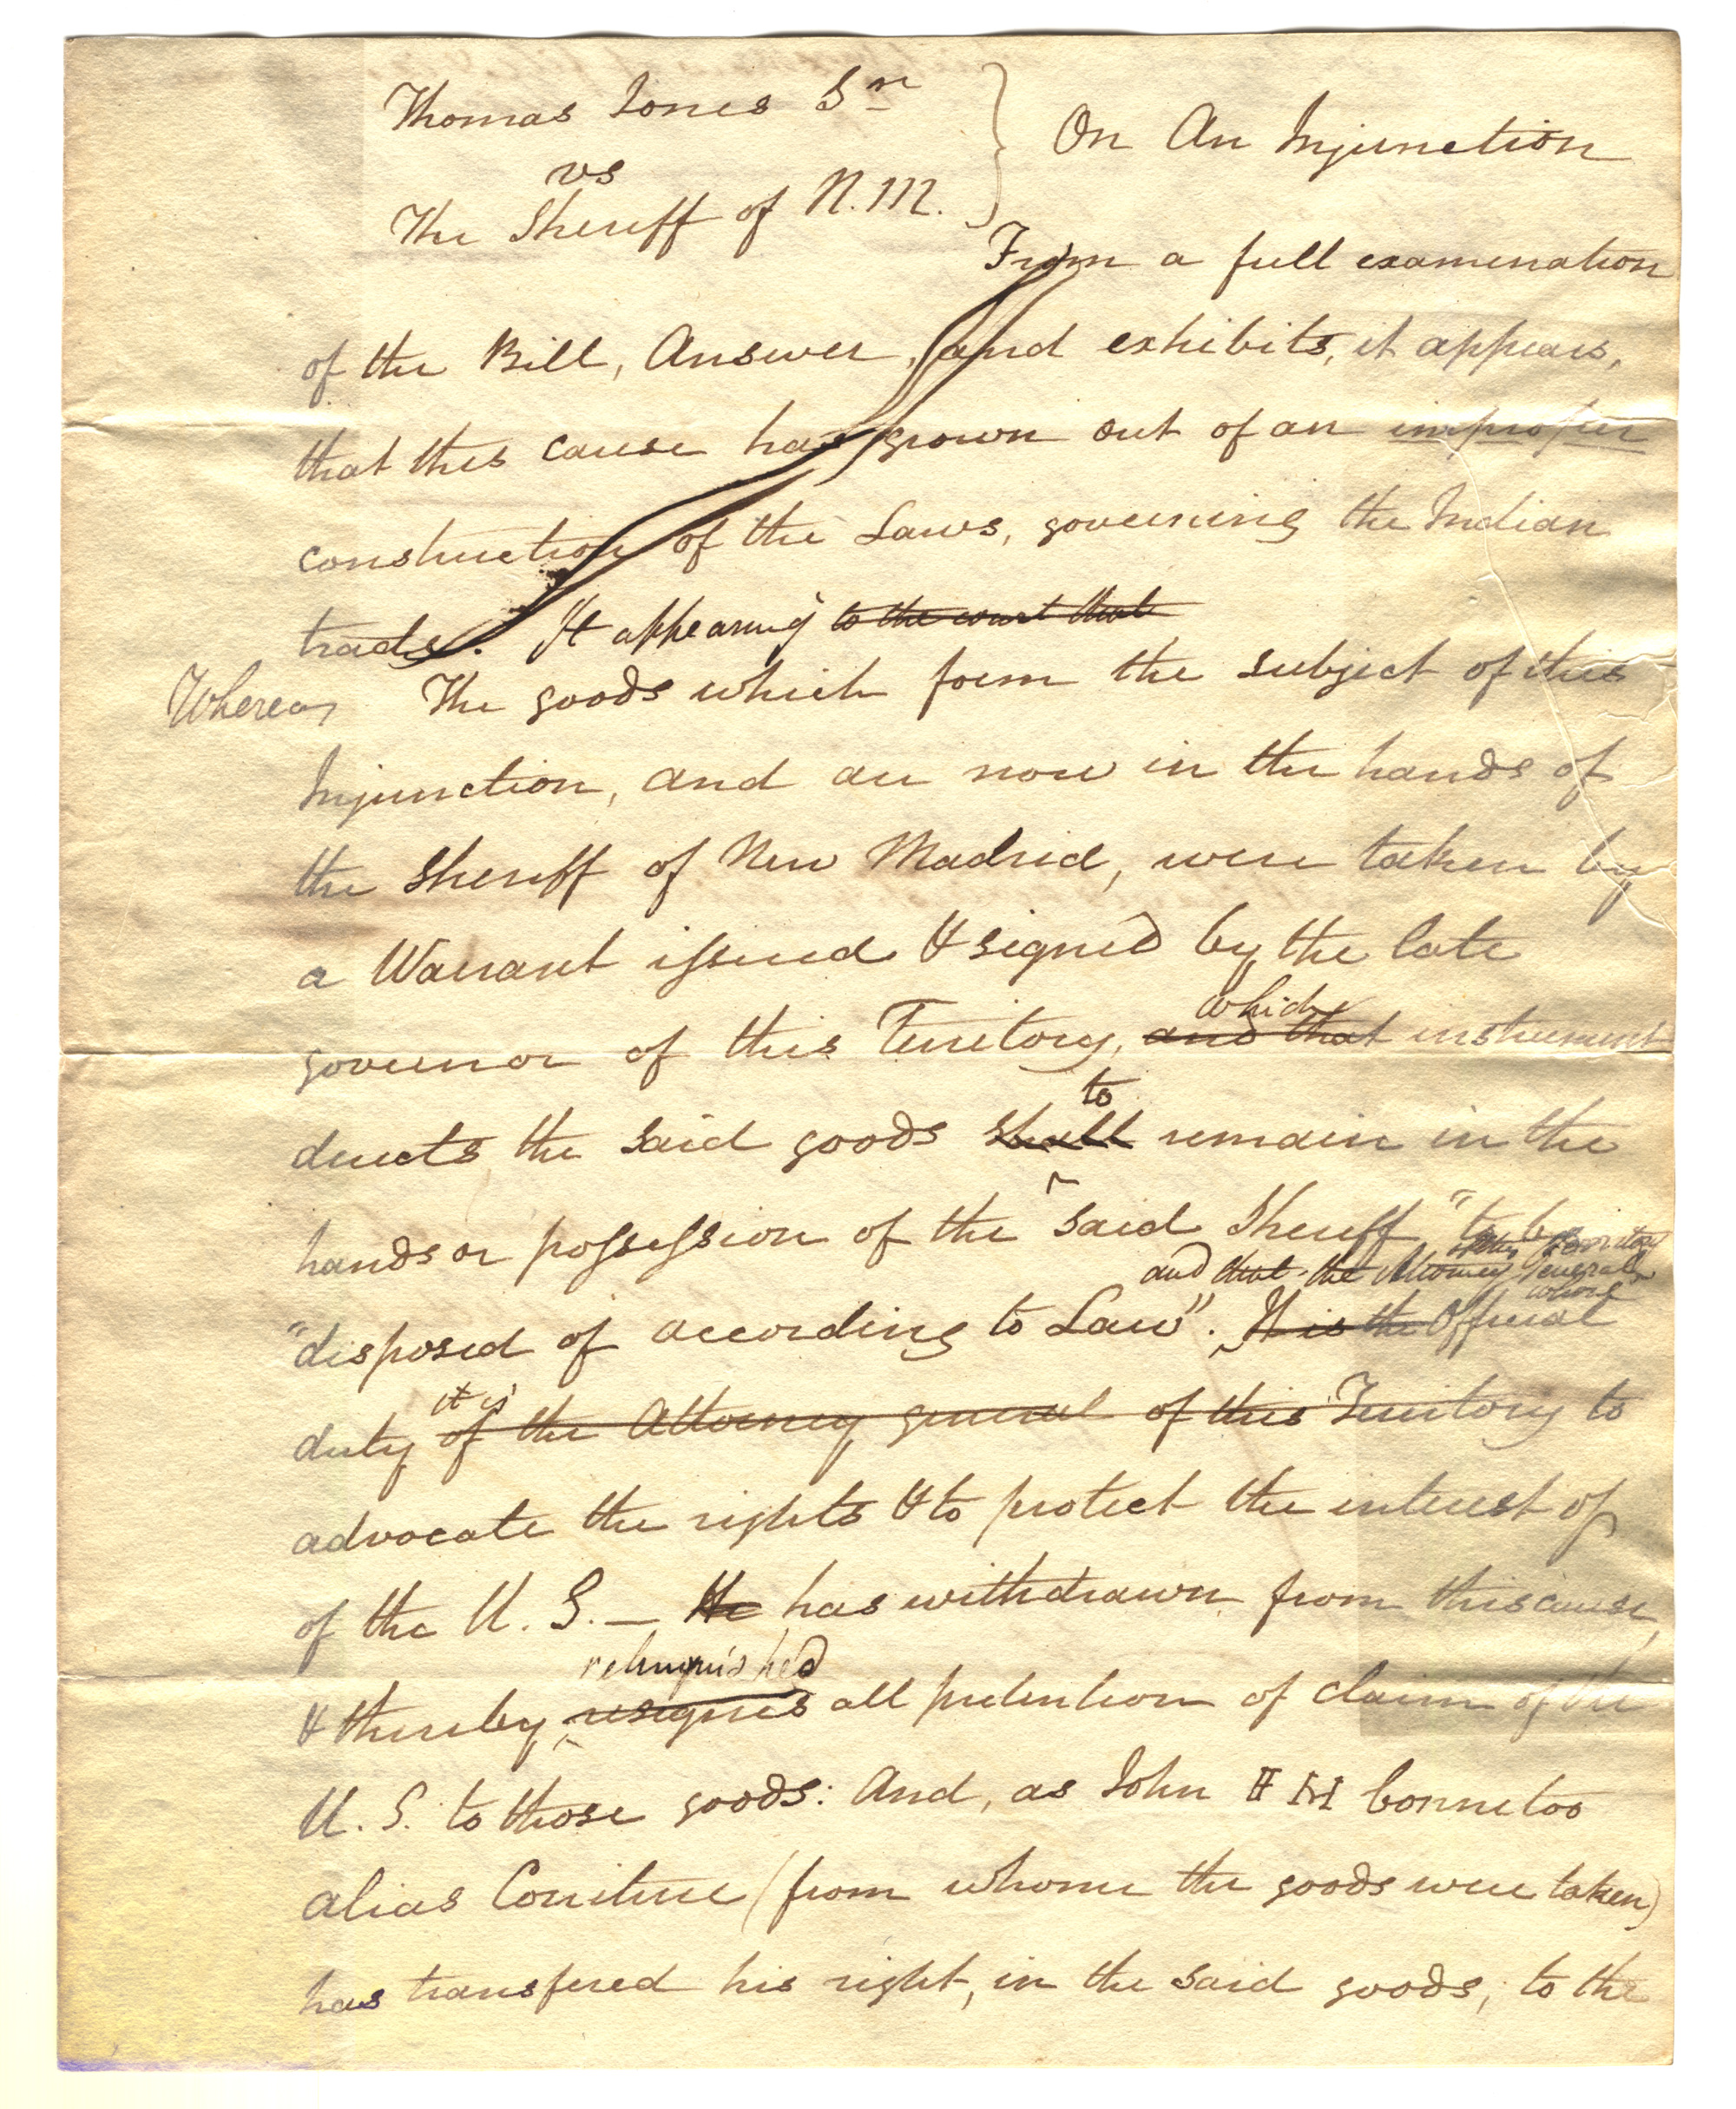 Thomas Jones Sr
vs
The Sheriff of N.M.
On An Injunction
From a full examination
of the Bill, Answer, and exhibits, it appears,
that this cause has grown out of an improper
construction of the Laws, governing the Indian
trade. It appearing to the court that
Whereas The goods which form the subject of this
Injunction, and are now in the hands of
the Sheriff of New Madrid, were taken by
a Warrant issued & signed by the late
which
governor of this Territory, and that instrument
to
directs the said goods shall remain in the
hands or possession of the said Sheriff "to be
Territory
and that the Attorney General
whose
"disposed of according to Law". It is the Official
it is
duty of the Attorney general of this Territory to
advocate the rights & to protect the interest of
of the U. S. — He has withdrawn from this cause,
relinquished
& thereby resignes all pretention of claim of the
U. S. to those goods: And, as John bonnetoo
alias (from whome the goods were taken)
has transfered his right, in the said goods, to the